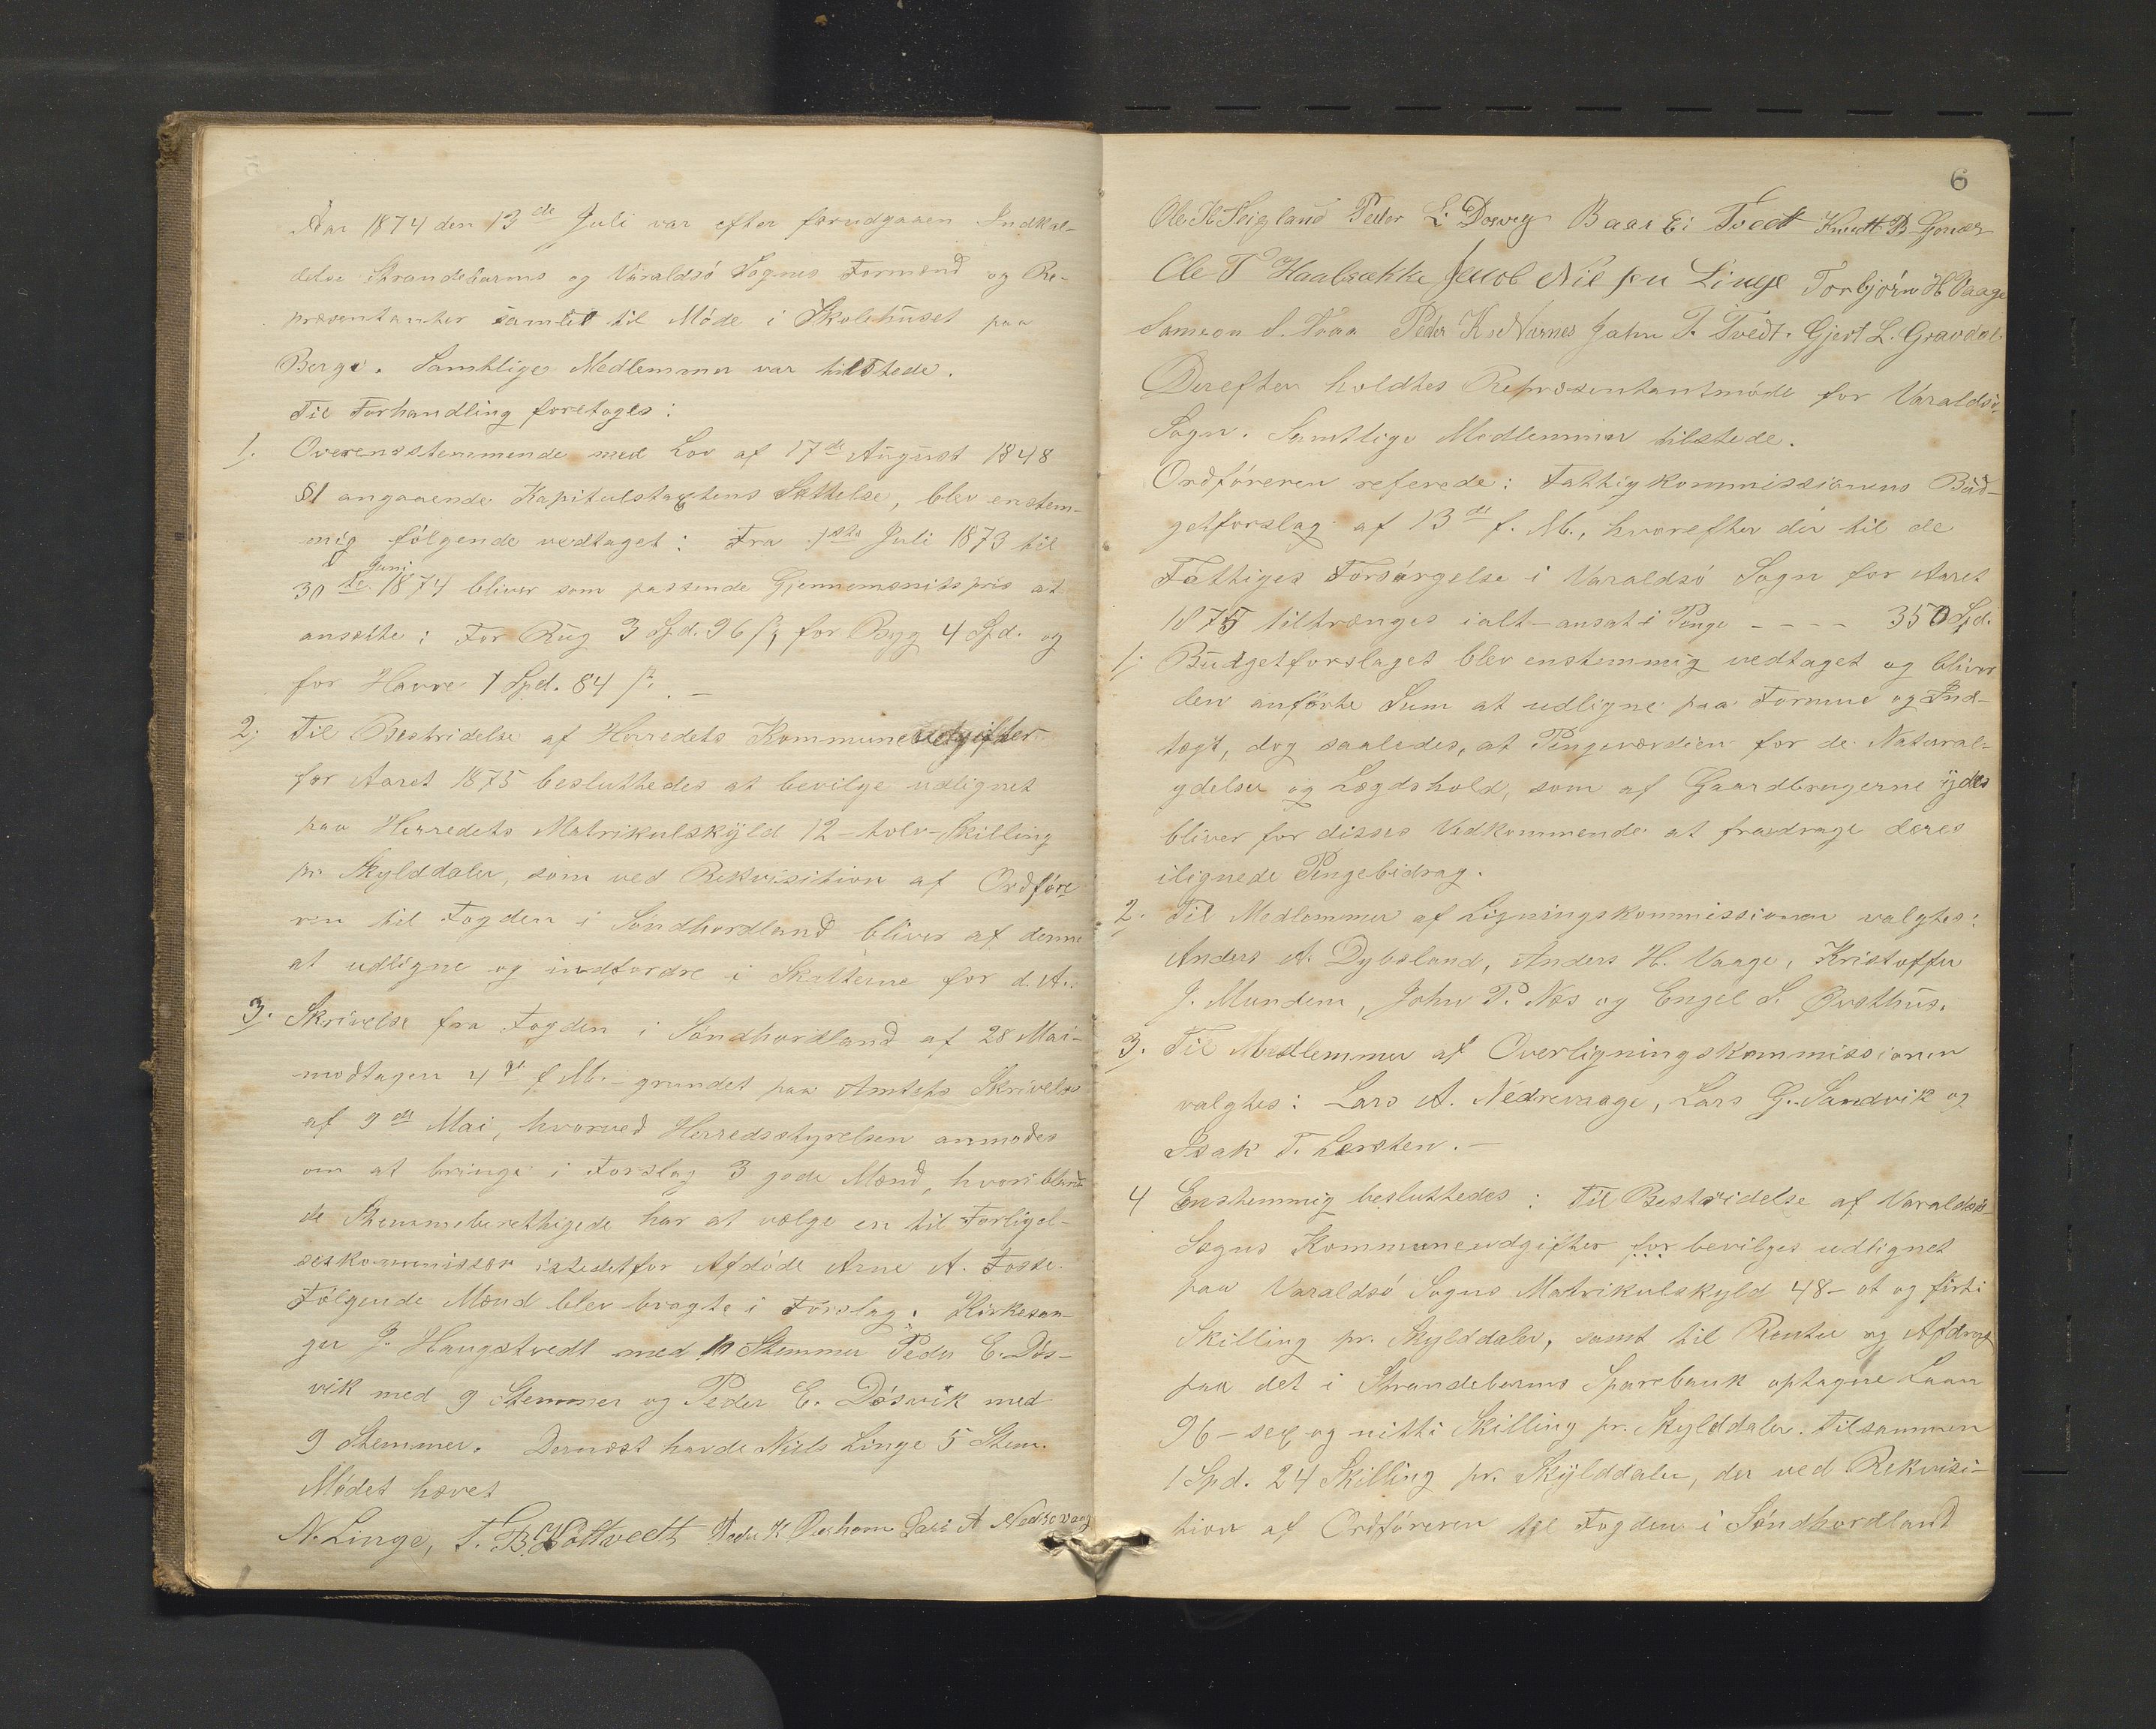 Aar 1874 den 13de Juli var efter forudgaaen Indkal-
delse Strandebarms og Varaldsö Sognes Formænd og Re-
præsentanter samlet til Möde i Skolehuset paa
Berge. Samtlige Medlemmer var tilstede.
Til Forhandling foretoges:
1. Overensstemmende med Lov af 17de August 1848
§1 angaaende Kapitulstaxtens Sættelse, blev enstem-
mig fölgende vedtaget: Fra 1ste Juli 1873 til
30te Juni 1874 bliver som passende Gjennemsnitspris at
ansætte: For Rug 3 Spd. 96 ß, for Byg 4 Spd. og
for Havre 1 Spd. 84 ß. —
2. Til Bestridelse af Herredets Kommuneudgifter
for Aaret 1875 besluttedes at bevilge udlignet
paa Herredets Matrikulskyld 12 - tolv - Skilling
pr. Skylddaler, som ved Rekvisition af Ordföre
ren til Fogden i Söndhordland bliver af denne
at udligne og indfordre i Skatterne for d. A.
3. Skrivelse fra Fogden i Söndhordland af 28 Mai -
modtagen 4de f. M. - grundet paa Amtets Skrivelse
af 9de Mai, hvorved Herredsstyrelsen anmodes
om at bringe i Forslag 3 gode Mænd, hvoriblandt
de Stemmeberettigede har at vælge en til Forligel-
seskommissær istedetfor Afdöde Arne A. Fosse.
Fölgende Mænd blev bragte i Forslag: Kirkesan-
ger J. Haugstvedt med 10 Stemmer Peder E. Dös-
vik med 9 Stemmer og Peder E. Dösvik med
9 Stemmer. Dernæst havde Niels Linge 5 Stem.
Mödet hævet
N. Linge, T. B. Holtvedt Peder K. Lars A Nedrevaag
6
Ole Peder L. Dosvig Baar Ei Tvedt Knudt B.
Ole T Haalsække Jacob Nilsen Linge Torbjörn H Vaage
Samson S. Peder K. Nernes Jahn T. Tvedt. Gjert L. Gravdal.
Derefter holdtes Repræsentantmöde for Varaldsö
Sogn. Samtlige Medlemmer tilstede.
Ordföreren referede: Fattigkommissionens Bud-
getforslag af 13de f. M., hvorefter der til de
Fattiges Forsörgelse i Varaldsö Sogn for Aaret
1875 tiltrænges ialt - ansat i Penge - - - - 350 Spd.
1. Budgetforslaget blev enstemmig vedtaget og bliver
den anförte Sum at udligne paa Formue og Ind-
tægt, dog saaledes, at Pengeværdien for de Natural-
ydelser og Lægdshold, som af Gaardbrugerne ydes
bliver for disses Vedkommende at fradrage deres
ilignede Pengebidrag.
2. Til Medlemmer af Ligningskommissionen valgtes:
Anders A. Dybsland, Anders H. Vaage, Kristoffer
J. Mundem, John P. Næs og Engel S. Qvsthus.
3. Til Medlemmer af Overligningskommissionen
valgtes: Lars A. Nedrevaage, Lars G. Sandvik og
Isak T. Lersten. —
4 Enstemmig besluttedes: Til Bestridelse af Varaldsö
Sogns Kommuneudgifter for bevilges udlignet
paa Varaldsö Sogns Matrikulskyld 48 - ot og firti
Skilling pr. Skylddaler, samt til Renter og Afdrag
paa det i Strandebarms Sparebank optagne Laan
96 - sex og nitti Skilling pr. Skylddaler. Tilsammen
1 Spd. 24 Skilling pr. Skylddaler, der ved Rekvisi-
tion af Ordföreren til Fogden i Söndhordland